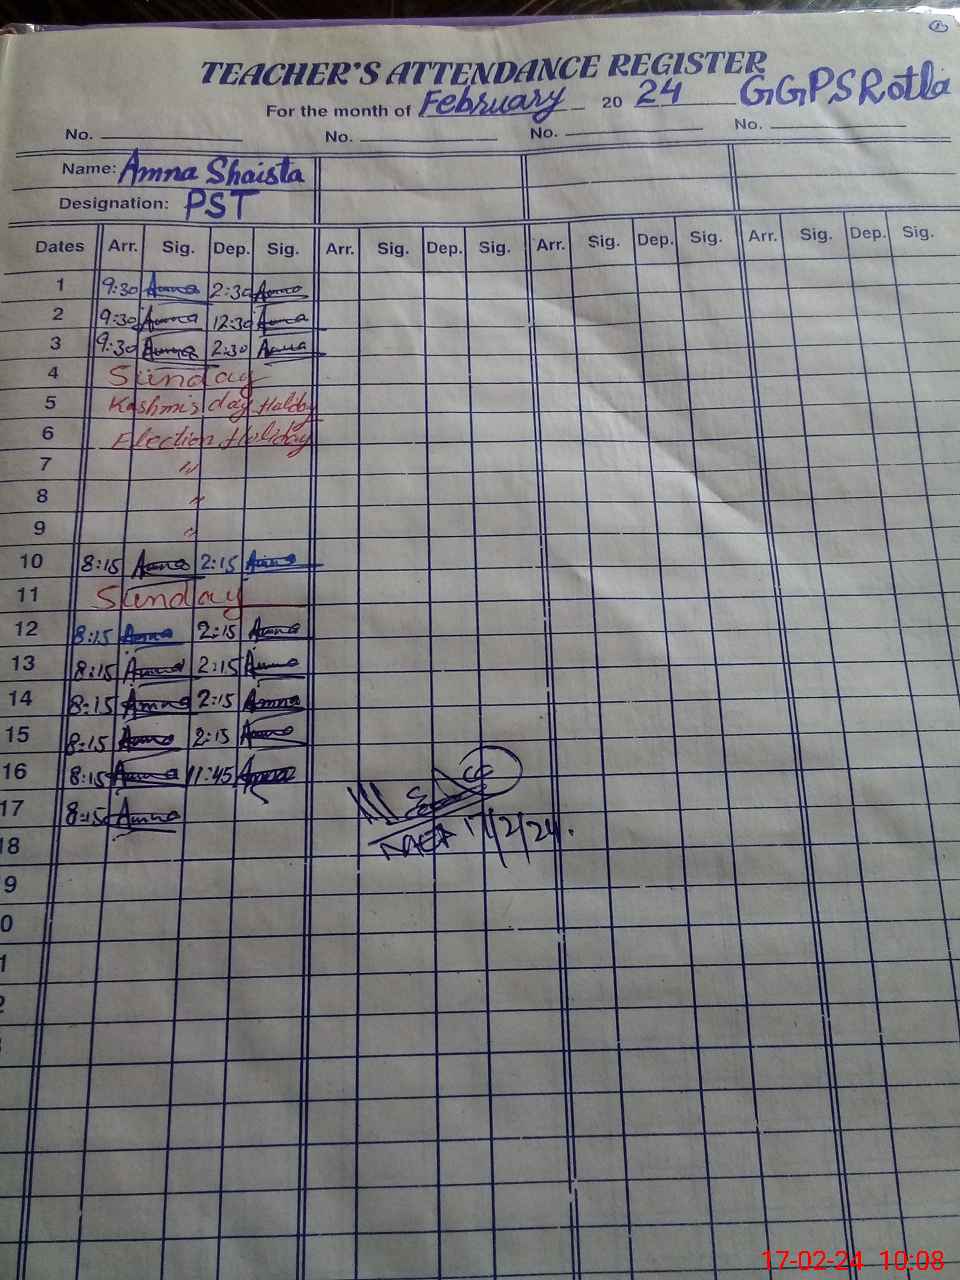 TEACHER'S ATTENDANCE REGISTER
For the month of February 20 24 GGPS Rotla
No. No. No. No.
Name: Amna Shaista
Designation: PST
Dates Arr. Sig. Dep. Sig. Arr. Sig. Dep. Sig. Arr. Sig. Dep. Sig. Arr. Sig. Dep. Sig.
1 9:30 Amna 2:30 Amna
2 9:30 Amna 12:30 Amna
3 9:30 Amna 2:30 Amna
4 Sunday
5 Kashmir day Holiday
6 Election Holiday
7 "
8 "
9 "
10 8:15 Amna 2:15 Amna
11 Sunday
12 8:15 Amna 2:15 Amna
13 8:15 Amna 2:15 Amna
14 8:15 Amna 2:15 Amna
15 8:15 Amna 2:15 Amna
16 8:15 Amna 11:45 Amna
17 8:15 Amna
17/2/24.
18
9
0
1
2
17-02-24 10:08